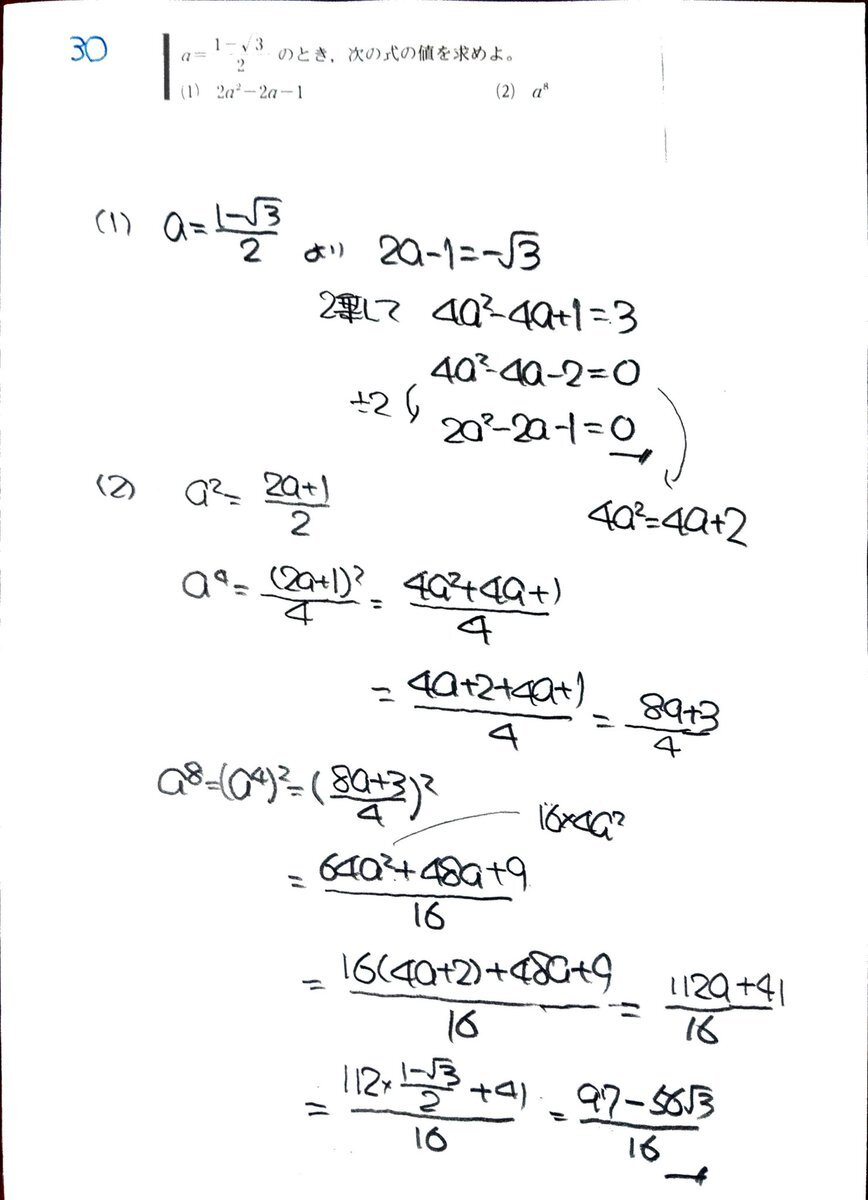 30
a=\frac{1-\sqrt{3}}{2} のとき，次の式の値を求めよ。
(1) 2a²-2a-1 (2) a⁸
(1) a=\frac{1-√3}{2} より 2a-1=-√3
2乗して 4a²-4a+1=3
4a²-4a-2=0
÷2 2a²-2a-1=0
4a²=4a+2
(2) a²=\frac{2a+1}{2}
a⁴=\frac{(2a+1)²}{4}=\frac{4a²+4a+1}{4}
=\frac{4a+2+4a+1}{4}=\frac{8a+3}{4}
a⁸=(a⁴)²=(\frac{8a+3}{4})²
16×4a²
=\frac{64a²+48a+9}{16}
=\frac{16(4a+2)+48a+9}{16}=\frac{112a+41}{16}
=\frac{112×\frac{1-√3}{2}+41}{16}=\frac{97-56√3}{16}